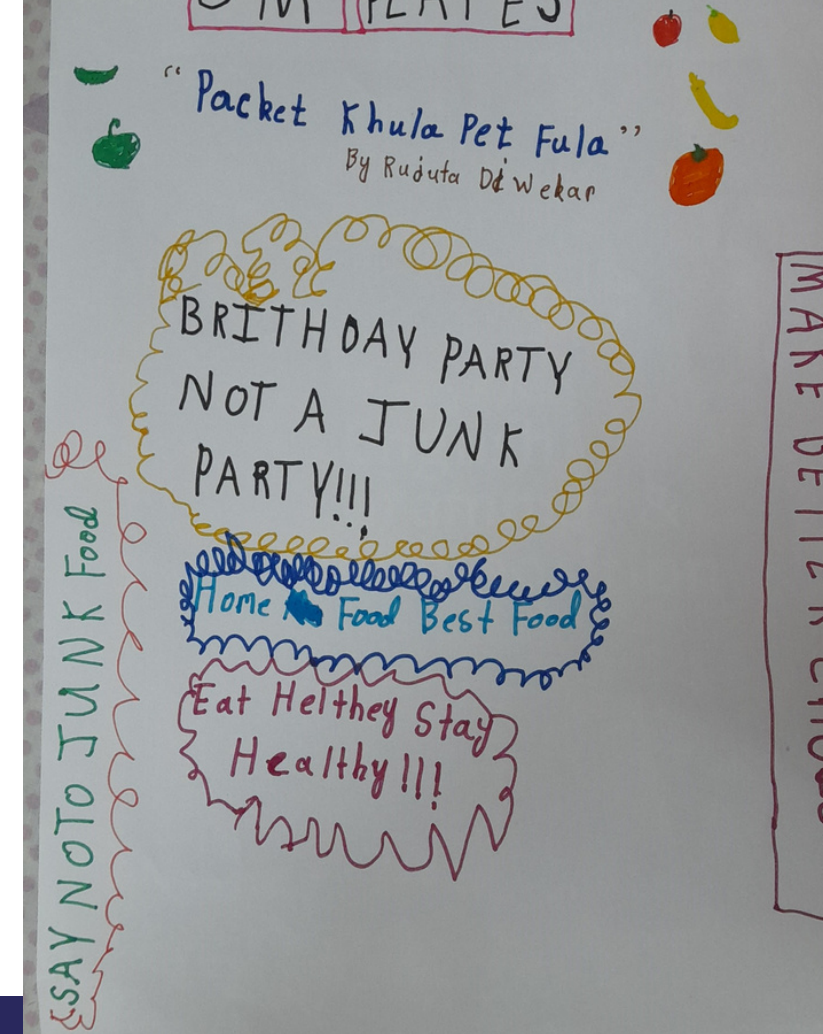 “Packet Khula Pet Fula”
By Rujuta Diwekar
BRITHDAY PARTY
NOT A JUNK
PARTY!!!
Home Food Best Food
Eat Helthey Stay
Healthy!!!
SAY NO TO JUNK Food
MAKE BETTER